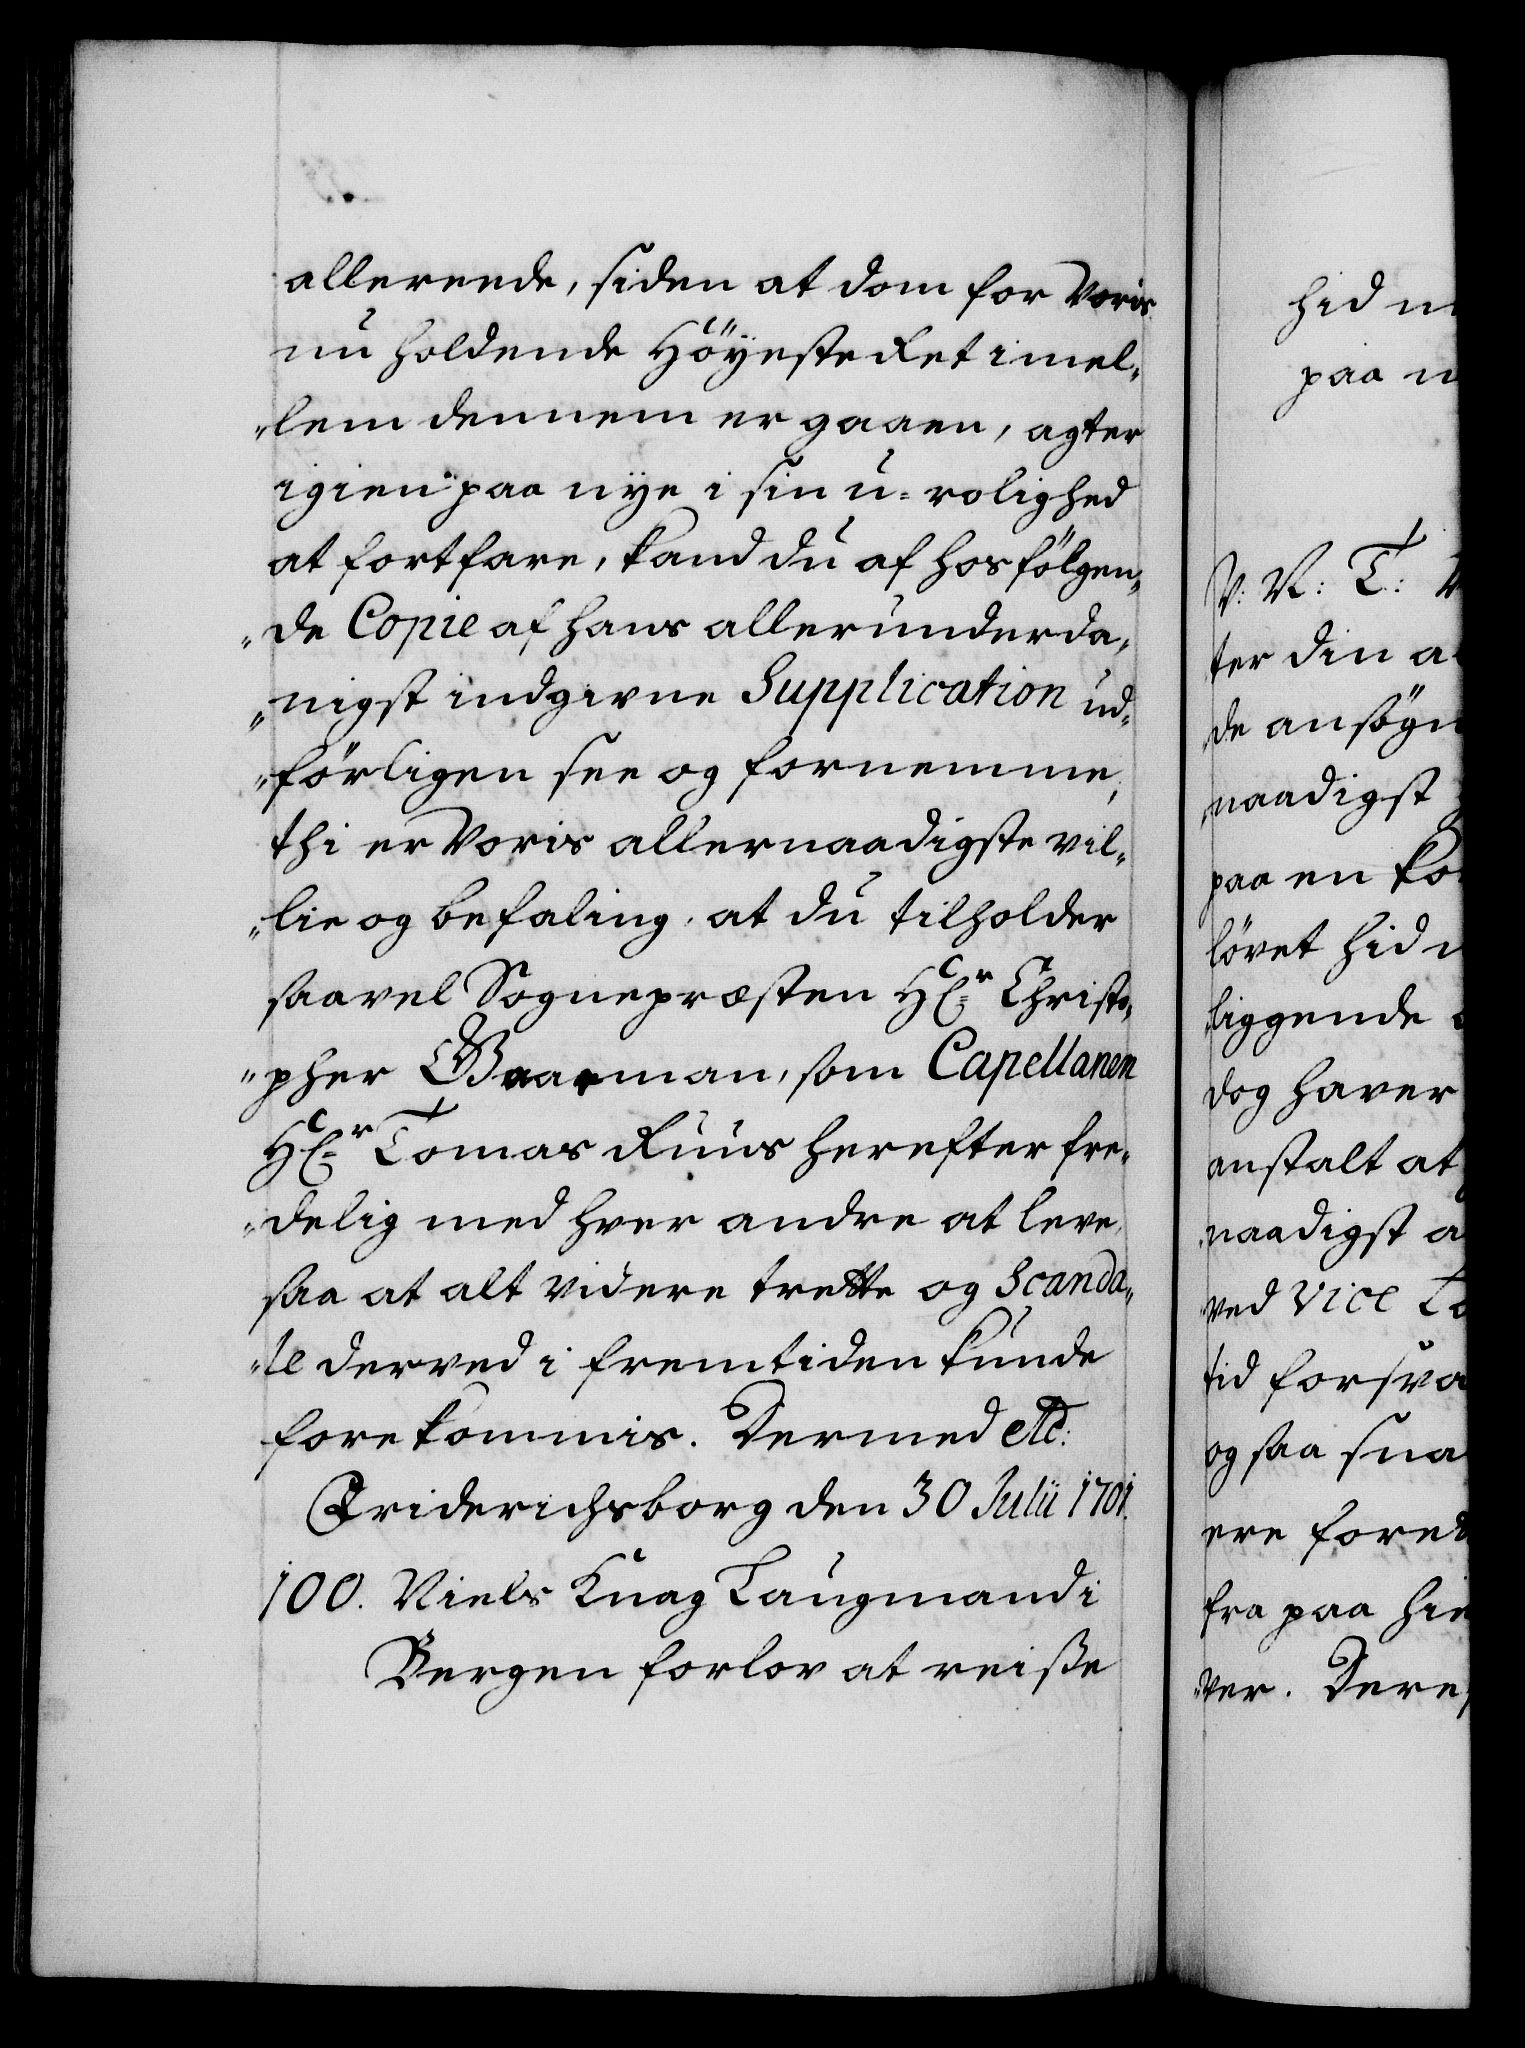 allereede, siden at dom for Voris
nu holdende Höyeste Ret imel„
„lem dennem er gaaen, agter
igien paa nye i sin u-rolighed
at fortfare, kand du af hosfölgen„
„de Copie af hans allerunderda„
„nigst indgivne Supplication ud„
„förligen see og fornemme,
thi er Voris allernaadigste vil„
„lie og befaling, at du tilholder
saavel Sognepræsten Hr. Christo„
„pher Gaarman, som Capellanen
Hr. Tomas Ruus herefter fre„
„delig med hver andre at leve,
saa at alt videre trette og Scanda„
„le derved i fremtiden kunde
forekommis. Dermed etc:
Friderichsborg den 30 Julii 1701.
100. Niels Knag Laugmand i
Bergen forlov at reiße
hid n
paa n
V: N: T:
ter din a
de ansögn
naadigst
paa en ko
lövet hid
liggende
dog haver
anstalt at
naadigst a
ved Vice La
tid forsva
og saa sna
ere fored
fra paa hie
„ver. Deref